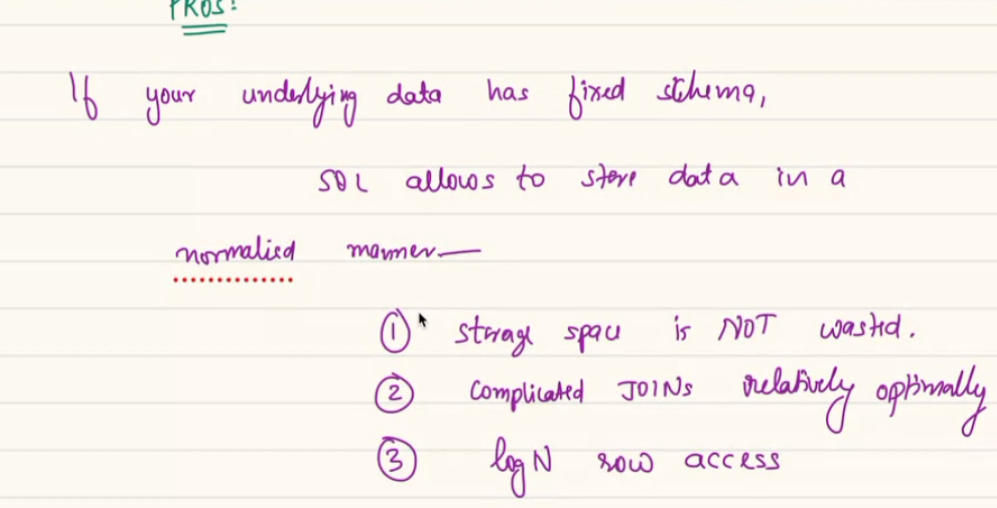 PROS:
If your underlying data has fixed schema,
SQL allows to store data in a
normalised manner—
① storage space is NOT wasted.
② Complicated JOINs relatively optimally
③ log N row access